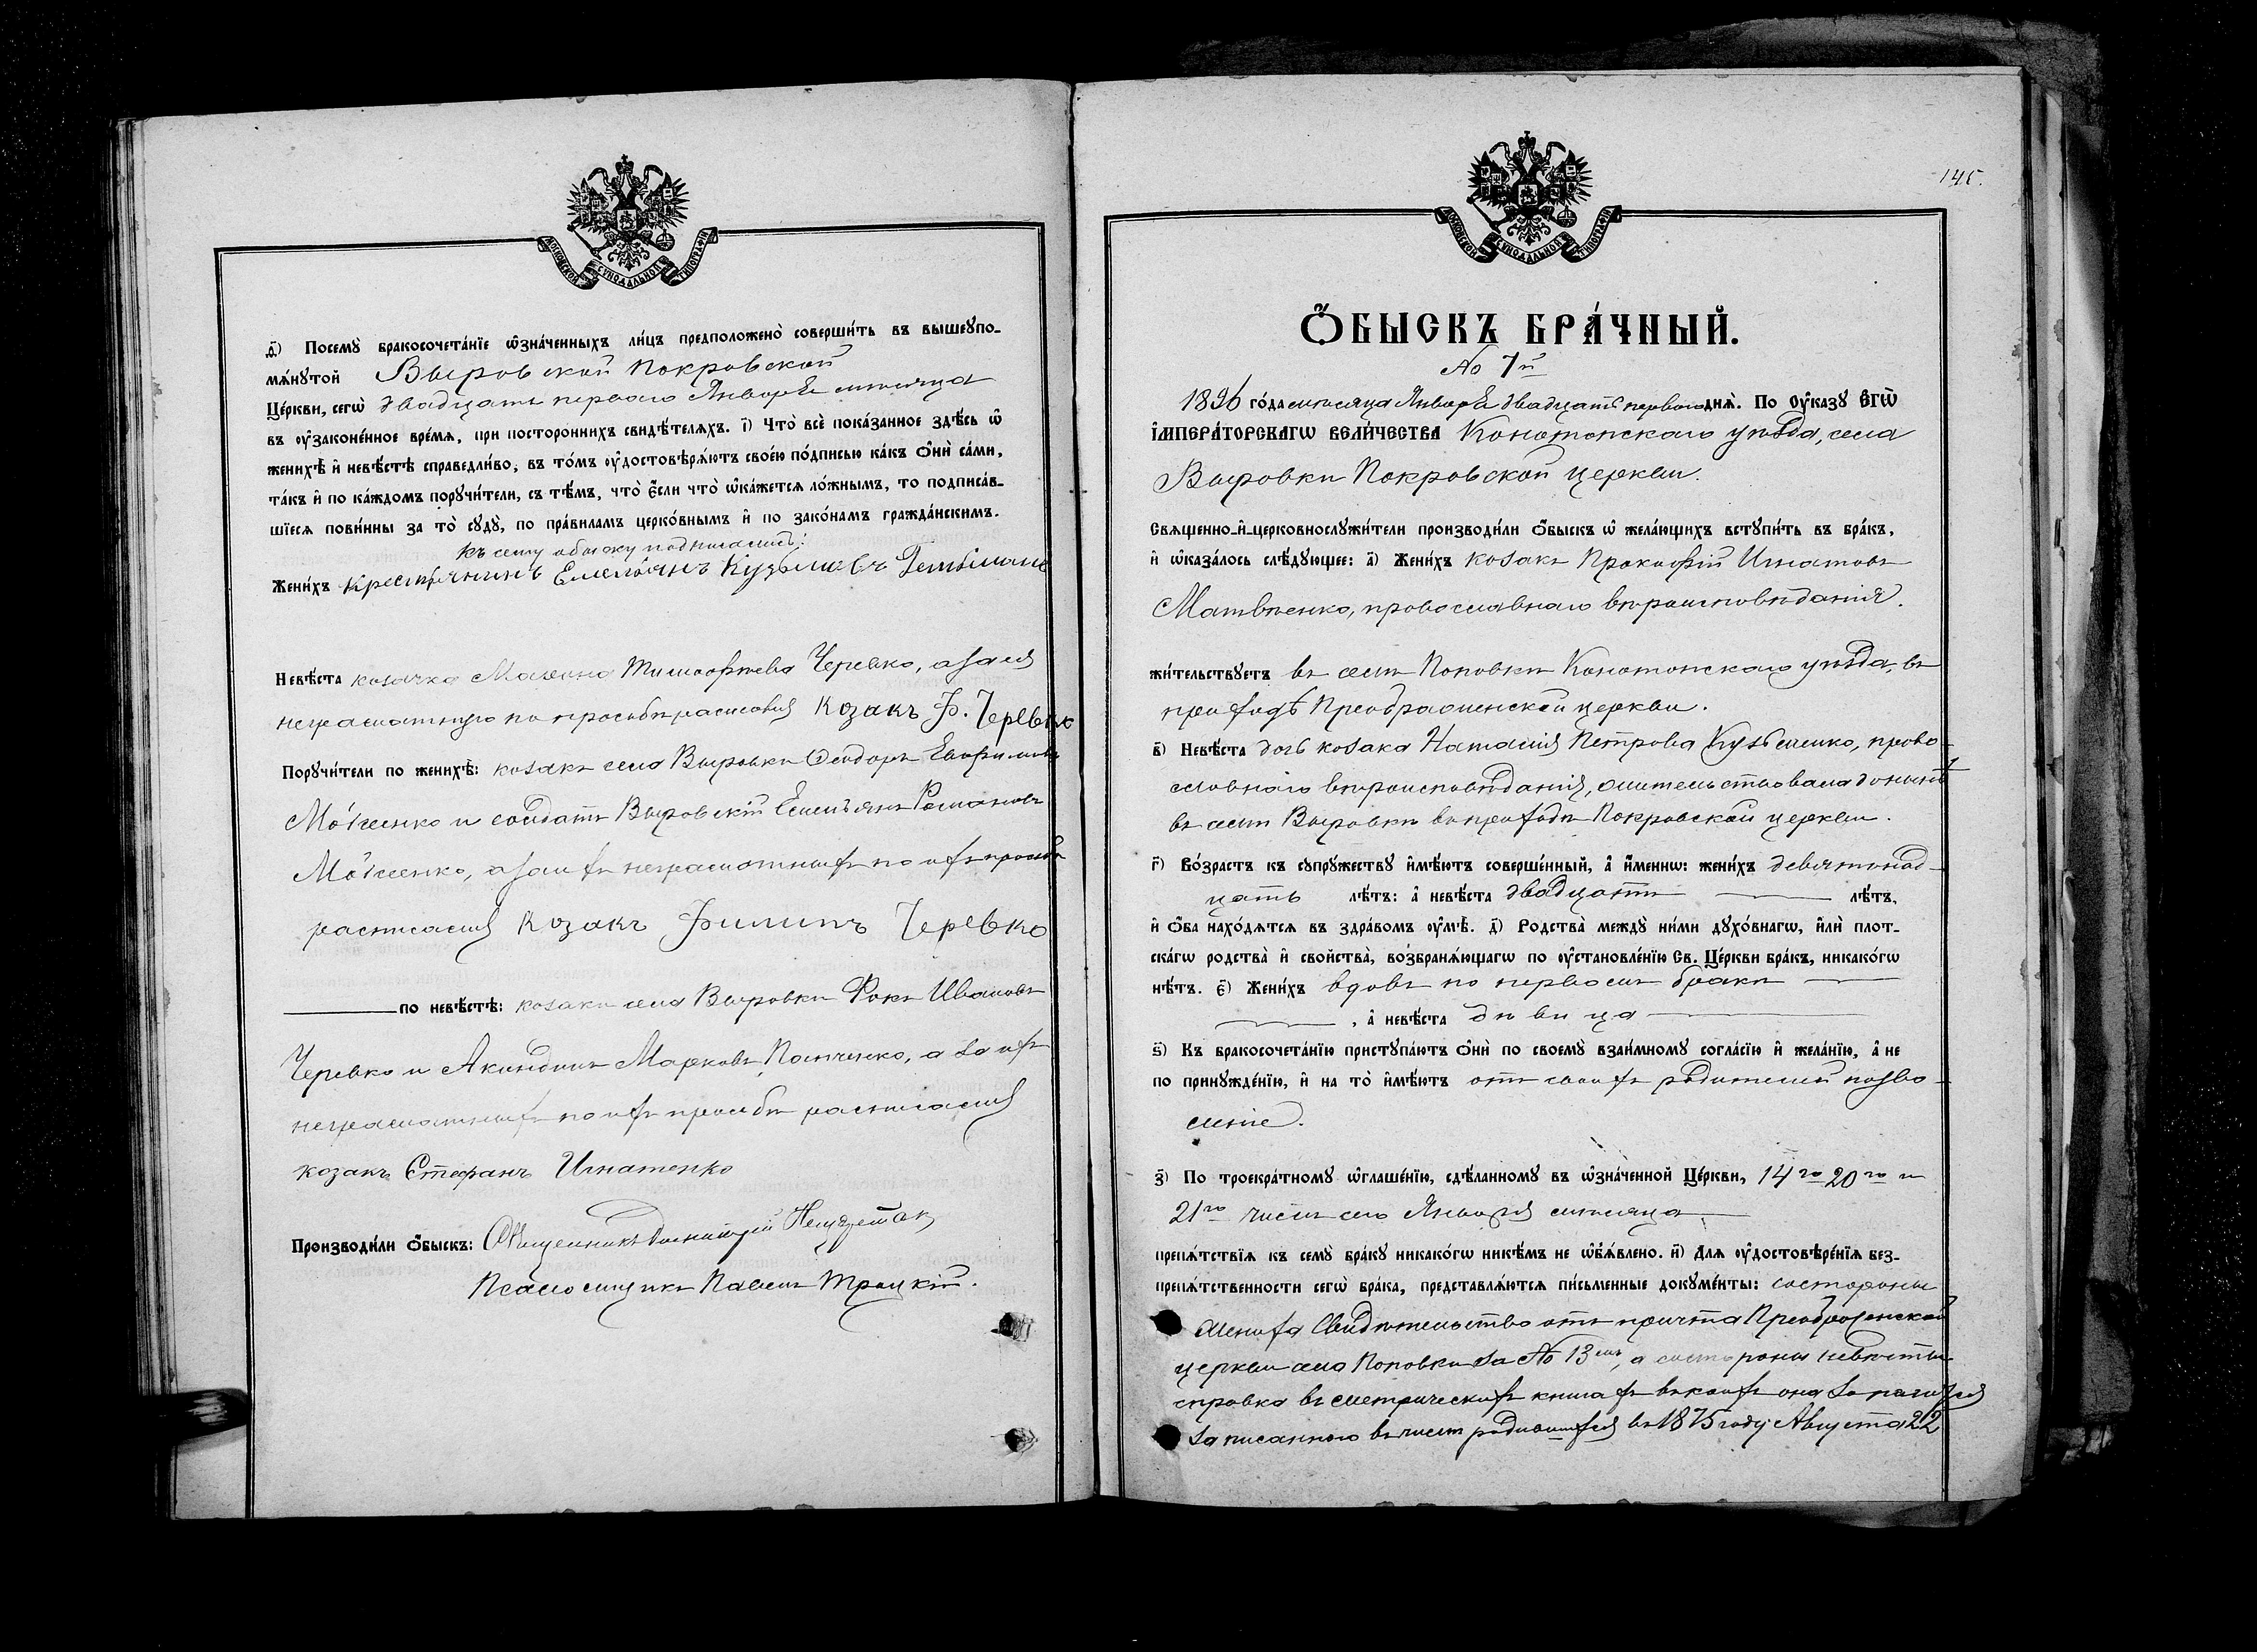 МОСКОВСКОЙ СѴНОДАЛЬНОЙ ТИПОГРАФІИ
д҃) Посемꙋ̀ бракосочета́нїе ѡ҆зна́ченныхъ ли́цъ предположено̀ соверши́ть въ вышеꙋпо-
мѧ́нꙋтой Выровской Покровской
Це́ркви, сегѡ̀ двадцать перваго Января мѣсяца
въ ѹ҆законе́нное вре́мѧ, при посторонныхъ свидѣ́телѧхъ. і҃) Что̀ всѐ пока́занное здѣ́сь ѡ҆
женихѣ̀ и҆ невѣ́стѣ справедли́во, въ то́мъ ѹ҆достовѣрѧ́ютъ свое́ю по́дписью ка́къ ѻ҆нѝ са́ми,
та́къ и҆ по ка́ждомъ порꙋчи́тели, съ тѣ́мъ, что̀ є҆́сли что̀ ѡ҆ка́жетсѧ ло́жнымъ, то подписа́в-
шїесѧ пови́нны за то̀ сꙋдꙋ̀, по пра́виламъ церко́внымъ и҆ по зако́намъ гражда́нскимъ.
Къ сему обыску подписались:
Жени́хъ Крестьянинъ Емельянъ Кузьмичъ
Невѣ́ста козачка Марина Тимофѣева Черевко, а за ея
неграмотную по просьбѣ расписался Козакъ Ф. Черевко
Порꙋчи́тели по женихѣ̀: козакъ села Выровки Ѳеодоръ Евфимовъ
Мойсенко и солдатъ Выровскій Емельянъ Романовъ
Мойсенко, а за ихъ неграмотныхъ по ихъ просьбѣ
расписался Козакъ Филипъ Черевко
по невѣ́стѣ: козаки села Выровки Фока Ивановъ
Черевко и Акиндинъ Марковъ Панченко, а за ихъ
неграмотныхъ по ихъ просьбѣ расписался
козакъ Стефанъ Игнатенко
Производи́ли ѻ҆́быскъ: Священникъ Димитрій
Псаломщикъ Павелъ Троцкій.
14
МОСКОВСКОЙ СѴНОДАЛЬНОЙ ТИПОГРАФІИ
Ѻ҆́БЫСКЪ БРА́ЧНЫЙ.
№ 7й
1896 го́да мѣсяца Января двадцать перваго днѧ̀. По ѹ҆ка́зꙋ Є҆гѡ̀
І҆МПЕРА́ТОРСКАГѠ ВЕЛИ́ЧЕСТВА Конотопскаго уѣзда, села
Выровки Покровской церкви.
Свѧщенно-и҆-церковнослꙋжи́тели производи́ли ѻ҆́быскъ ѡ҆ жела́ющихъ встꙋпи́ть въ бра́къ,
и҆ ѡ҆каза́лось слѣ́дꙋющее: а҃) Жени́хъ козакъ Прокофій Игнатовъ
Матвѣенко, православнаго вѣроисповѣданія.
жи́тельствꙋетъ въ селѣ Поповкѣ Конотопскаго уѣзда, въ
приходѣ Преображенской церкви.
в҃) Невѣ́ста дочь козака Наталія Петрова Кузьменко, право-
славнаго вѣроисповѣданія, жительствовала донынѣ
въ селѣ Выровкѣ въ приходѣ Покровской церкви.
г҃) Во́зрастъ къ сꙋпрꙋжествꙋ и҆мѣ́ютъ соверше́нный, а҆ и҆́меннѡ: жени́хъ девятнад-
цать лѣ́тъ: а҆ невѣ́ста двадцать лѣ́тъ,
и҆ ѻ҆́ба нахо́дѧтсѧ въ здра́вомъ ѹ҆мѣ̀. д҃) Родства̀ междꙋ̀ ни́ми дꙋхо́внагѡ, и҆лѝ плот-
ска́гѡ родства̀ и҆ свойства̀, возбранѧ́ющагѡ по ѹ҆становле́нїю Св. Це́ркви бра́къ, никако́гѡ
нѣ́тъ. є҃) Жени́хъ вдовъ по первомъ бракѣ
, а҆ невѣ́ста дѣвица
ѕ҃) Къ бракосочета́нїю пристꙋпа́ютъ ѻ҆нѝ по своемꙋ̀ взаи́мномꙋ согла́сїю и҆ жела́нїю, а҆ не
по принꙋжде́нїю, и҆ на то̀ и҆мѣ́ютъ отъ своихъ родителей позво-
леніе.
з҃) По троекра́тномꙋ ѡ҆глаше́нїю, сдѣ́ланномꙋ въ ѡ҆зна́ченной Це́ркви, 14го 20го и
21го чиселъ сего Января мѣсяца
препѧ́тствїѧ къ семꙋ̀ бра́кꙋ никако́гѡ никѣ́мъ не ѡ҆б̾ѧ́влено. и҃) Для ѹ҆достовѣре́нїѧ без-
препѧ́тственности сегѡ̀ бра́ка, представлѧ́ютсѧ пи́сьменные докꙋме́нты: со стороны
жениха Свидѣтельство отъ причта Преображенской
церкви села Поповки за № 13мъ, а со стороны невѣсты
справка въ метрическихъ книгахъ въ коихъ она
записанною въ числѣ родившихся въ 1875 году Августа 22